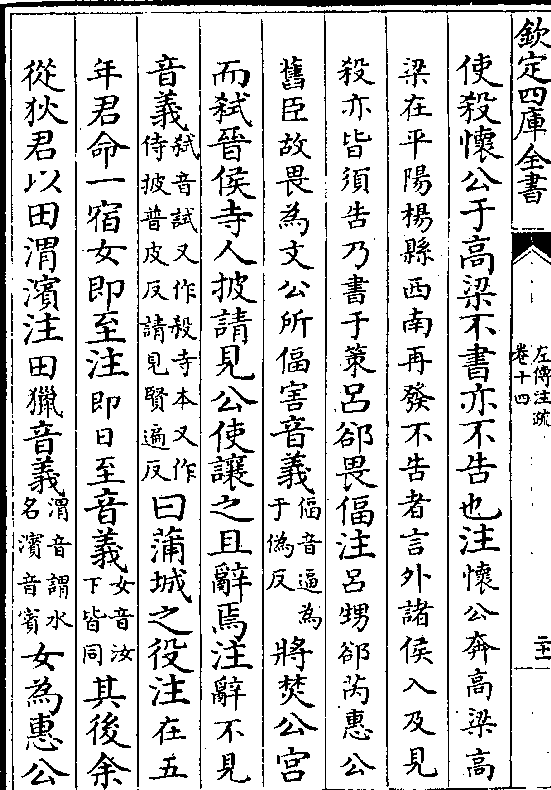 欽定四庫全書
左傳注疏
卷十四
二十一
使殺懷公于高梁不書亦不告也注懷公奔高梁高
梁在平陽楊縣西南再發不告者言外諸侯入及見
殺亦皆須告乃書于策呂郤畏偪注呂甥郤芮惠公
舊臣故畏為文公所偪害音義偪音逼為于偽反將焚公宫
而弑晉侯寺人披請見公使讓之且辭焉注辭不見
音義弑音試又作殺寺本又作侍披普皮反請見賢遍反曰蒲城之役注在五
年君命一宿女即至注即日至音義女音汝下皆同其後余
從狄君以田渭濱注田獵音義渭音謂水名濱音賓女為惠公